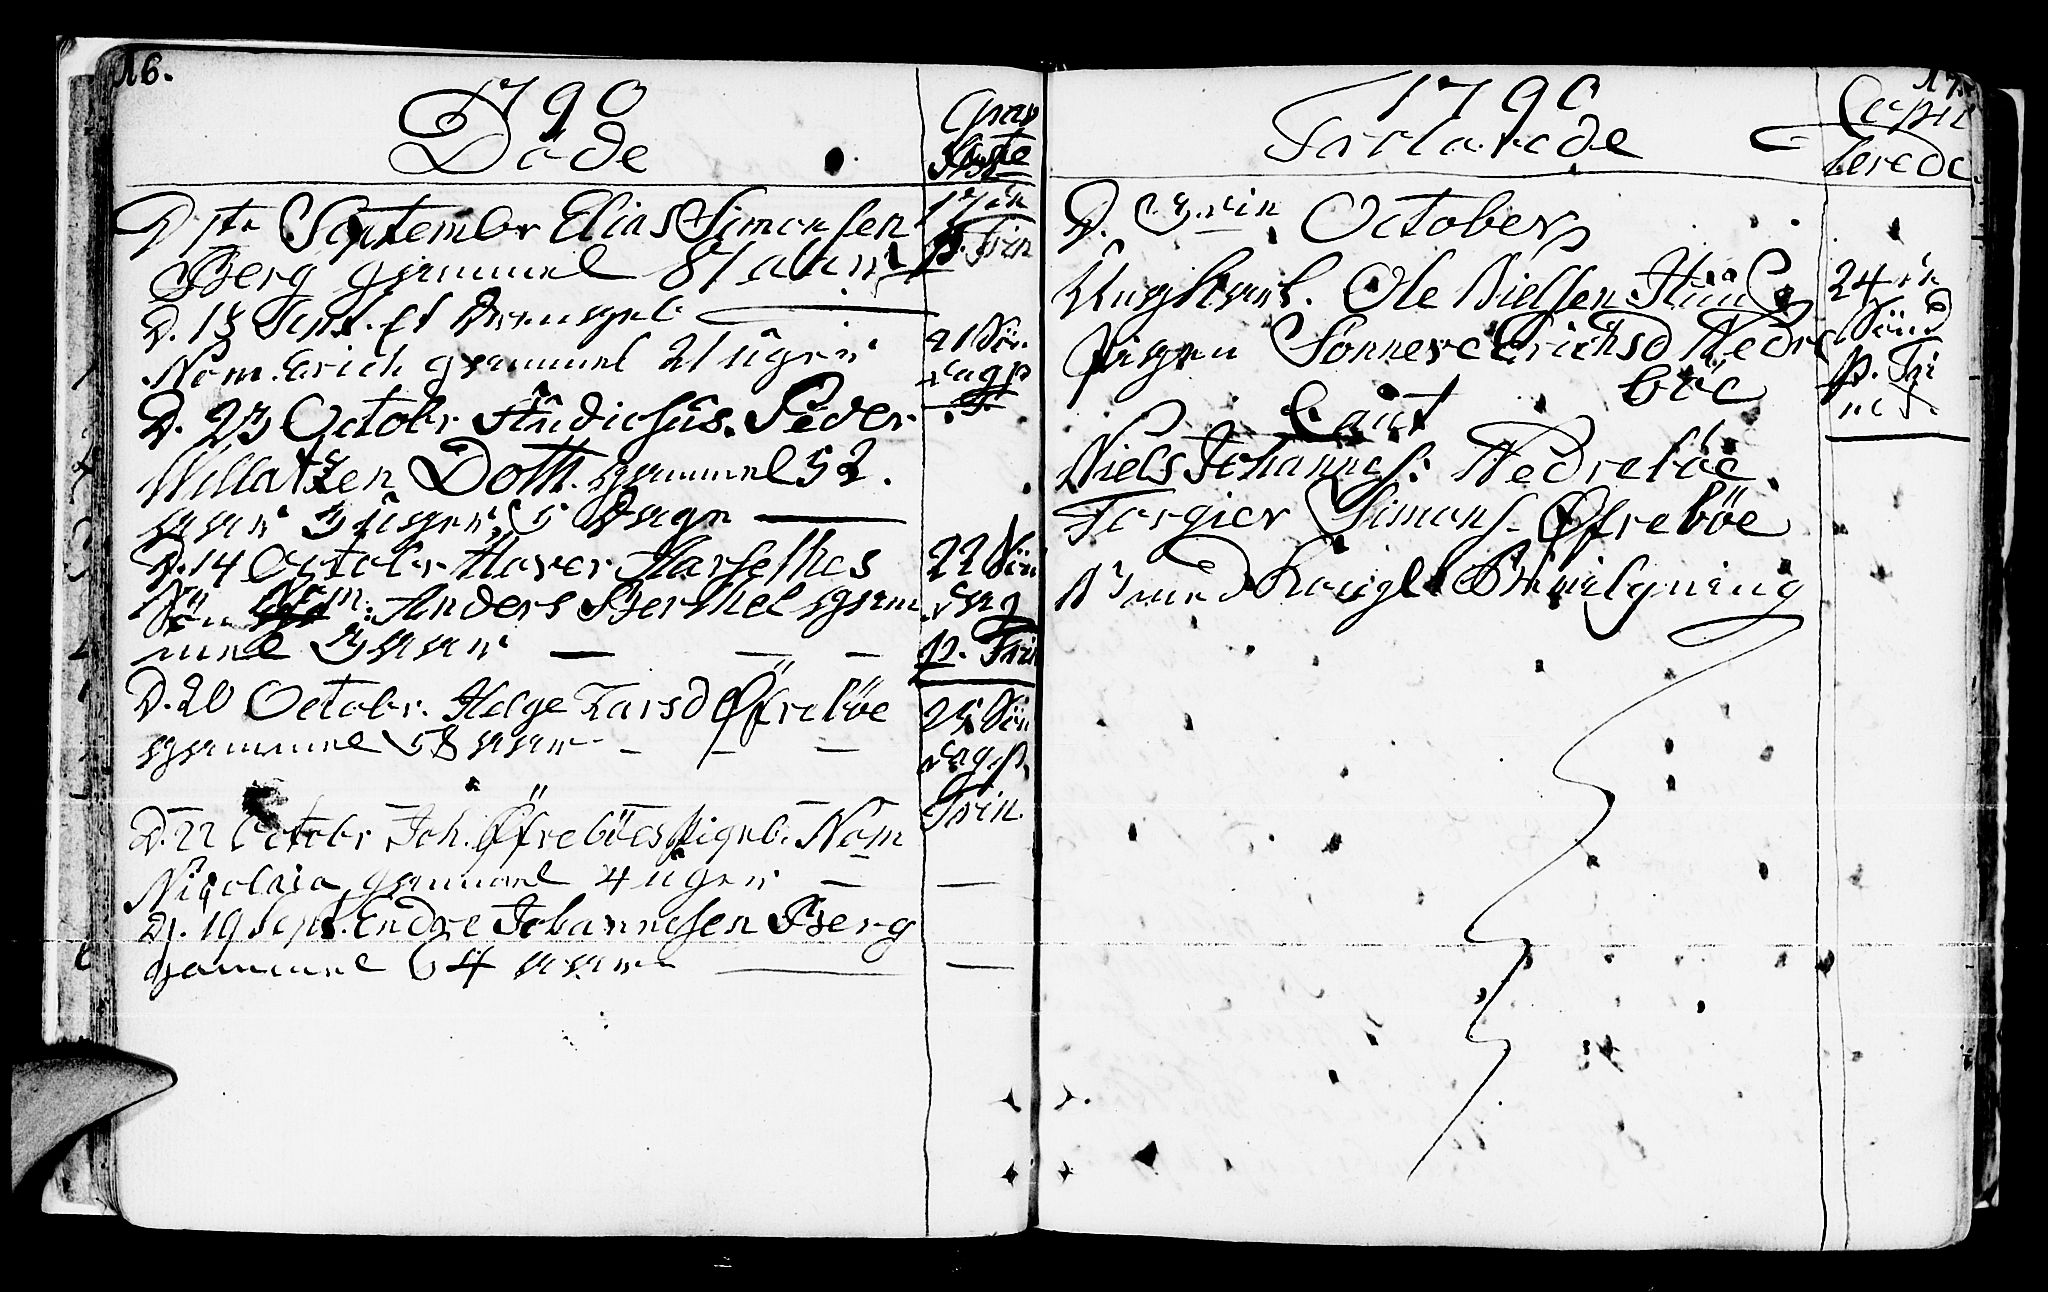 16.
1790
Døde
Grav
fæste
D 1ste September Elias Simonsen
Berg gammel 87 aar
17 én
p. Trin
D. 18 Sept. Et Drengeb
Nom. Erich gammel 21 ûger
21 Sön
dag p
T.
D. 23 Octobr Studiosus. Peder
Willatzen Doth. gammel 52.
aar 3 ûger, 5 Dage
D. 14 Octobr Haver Harsethes
Sön Nom. Anders Berthel gam
mel 3 aar
22 Sön
dag
p. Trin
D. 20 Octobr. Helge Larsd Öfreböe
gammel 58 aar
25 Sön
dag p.
Trin.
D. 22 Octobr Joh. Öfreböes Pigeb. Nom
Nicolaia gammel 4 ûger
D. 19 Sept. Endre Johannesen Berg
gammel 64 aar
17.
1790
Trolovede
Copu
lerede
D. October
Ungkarl. Ole Nielsen
Pigen Sønneve Erichsd Nedre
böe
24 én
Sönd
p. Tri
nit.
Caut
Niels Johannes. Nedreböe
Torgier Simons. Öfreböe
med Kongl Bevilgning